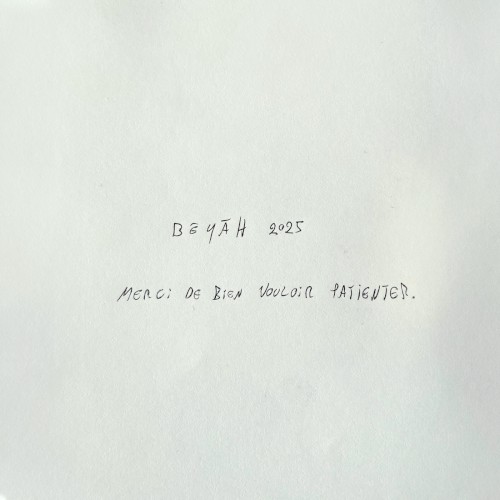 BēYĀH 2025
MERCi DE BIEN VOULOIR PATIENTER.